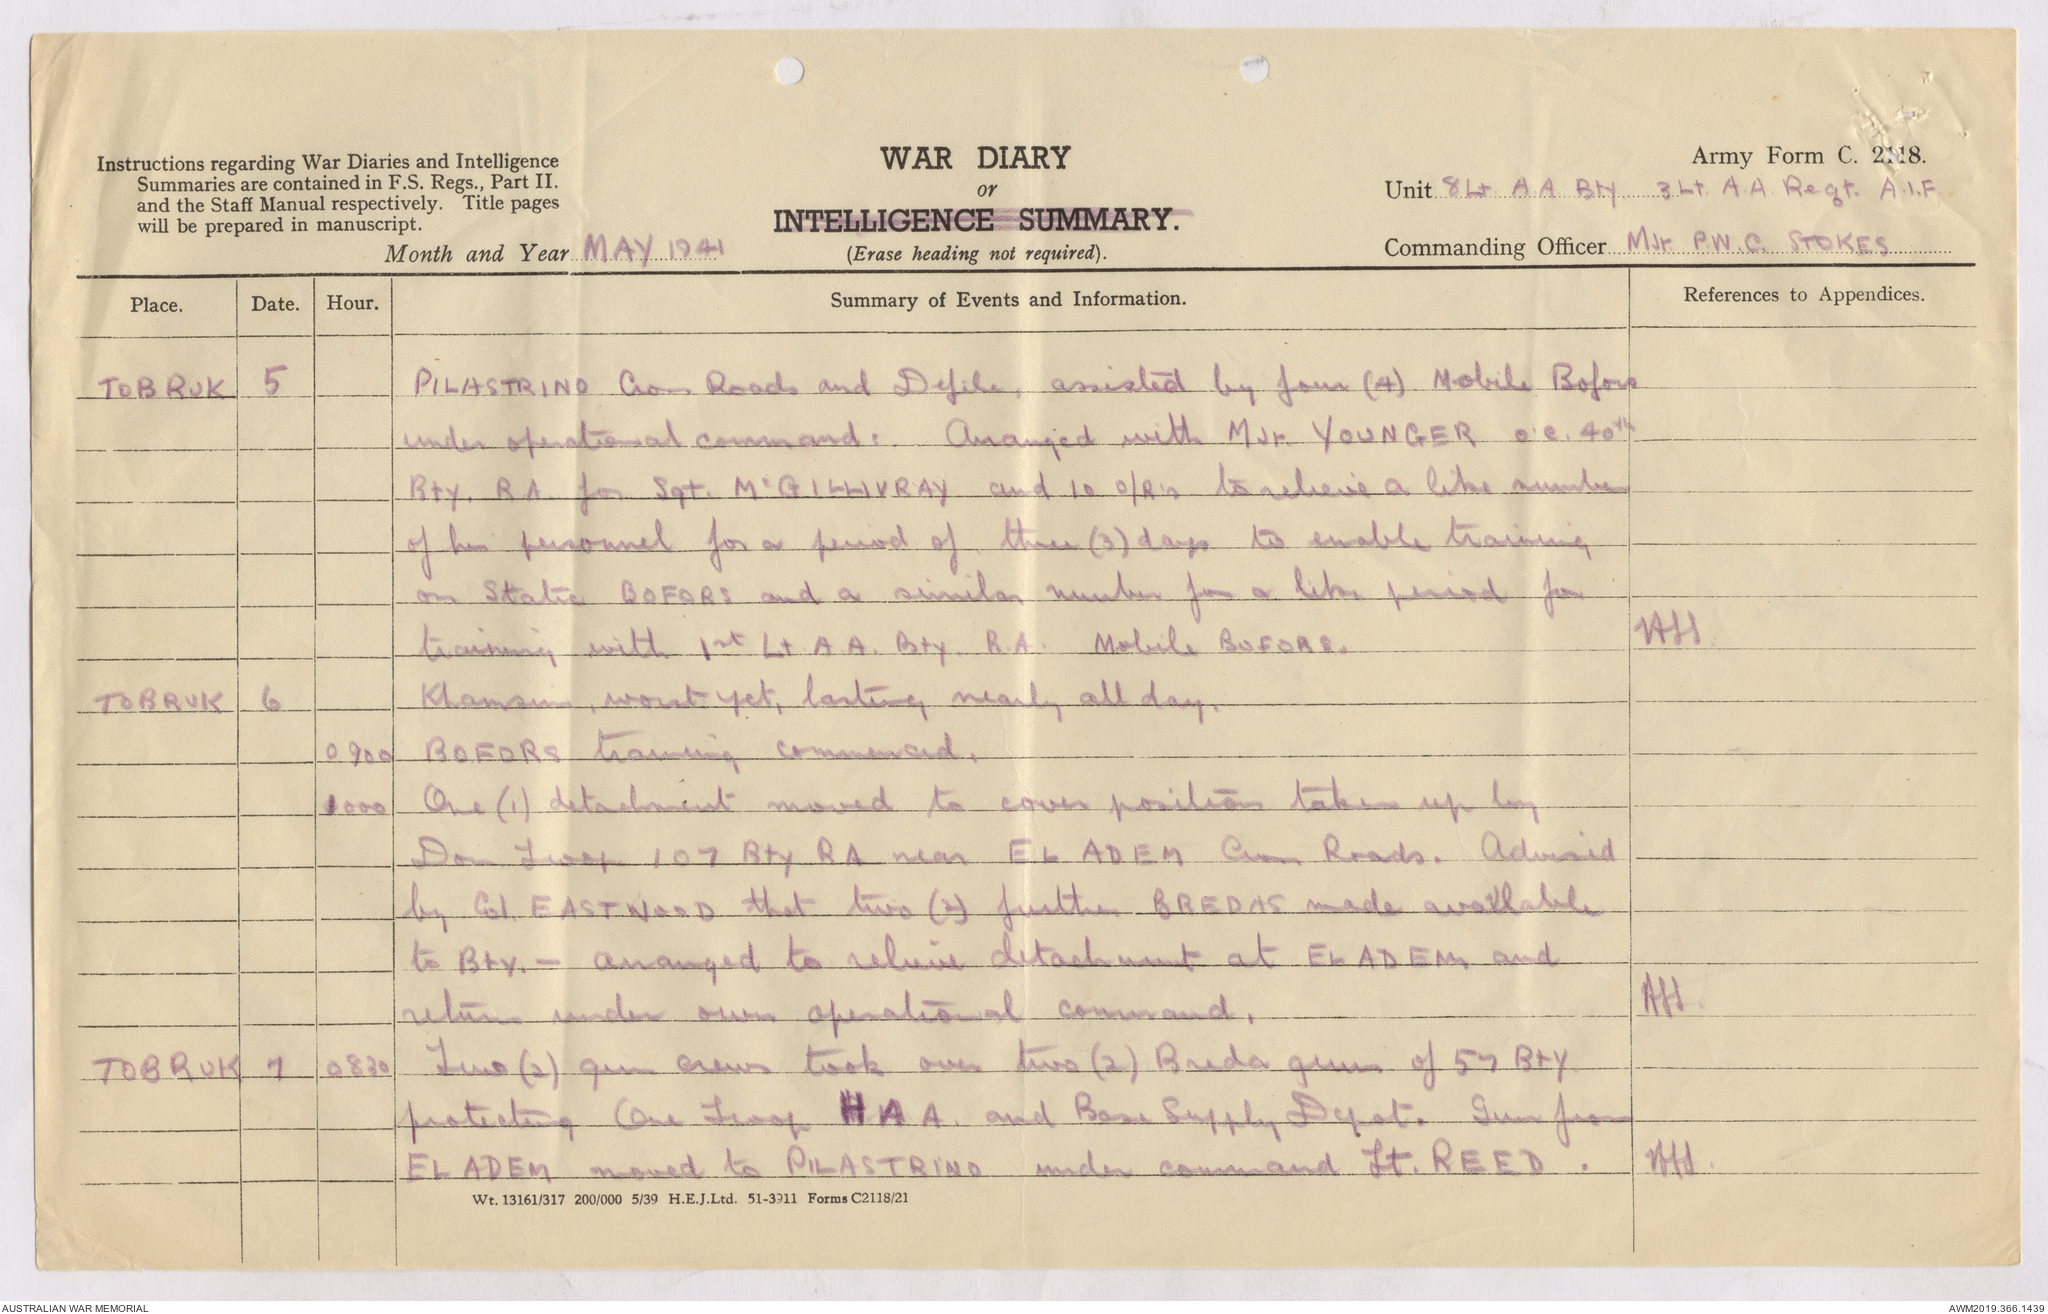 Instructions regarding War Diaries and Intelligence
Summaries are contained in F.S. Regs., Part II.
and the Staff Manual respectively. Title pages
will be prepared in manuscript.
Month and Year MAY 1941
WAR DIARY
or
INTELLIGENCE SUMMARY.
(Erase heading not required).
Army Form C. 2118.
Unit 8 Lt A.A. Bty 3 Lt. A.A. Regt. A.I.F.
Commanding Officer MJr. P.W.C. STOKES
Place. Date. Hour. Summary of Events and Information. References to Appendices.
TOBRUK 5 PILASTRINO Cross Roads and Defile, assisted by four (4) Mobile Bofors
under operational command. Arranged with MJr. YOUNGER o.c. 40th
Bty. R.A. for Sgt. McGILLIVRAY and 10 O/R's to relieve a like number
of his personnel for a period of three (3) days to enable training
on Static BOFORS and a similar number for a like period for
training with 1st Lt A.A. Bty. R.A. Mobile BOFORS.
TOBRUK 6 Khamsin, worst yet, lasting nearly all day.
0900 BOFORS training commenced.
1000 One (1) detachment moved to cover position taken up by
Don Troop 107 Bty RA near EL ADEM Cross Roads. Advised
by Col. EASTWOOD that two (2) further BREDAS made available
to Bty. — arranged to relieve detachment at EL ADEM, and
return under own operational command.
TOBRUK 7 0830 Two (2) gun crews took over two (2) Breda guns of 57 Bty.
protecting One Troop HAA. and Base Supply Depot. Gun from
EL ADEM moved to PILASTRINO under command Lt. REED.
Wt. 13161/317 200/000 5/39 H.E.J.Ltd. 51-3911 Forms C2118/21
AUSTRALIAN WAR MEMORIAL
AWM2019.366.1439